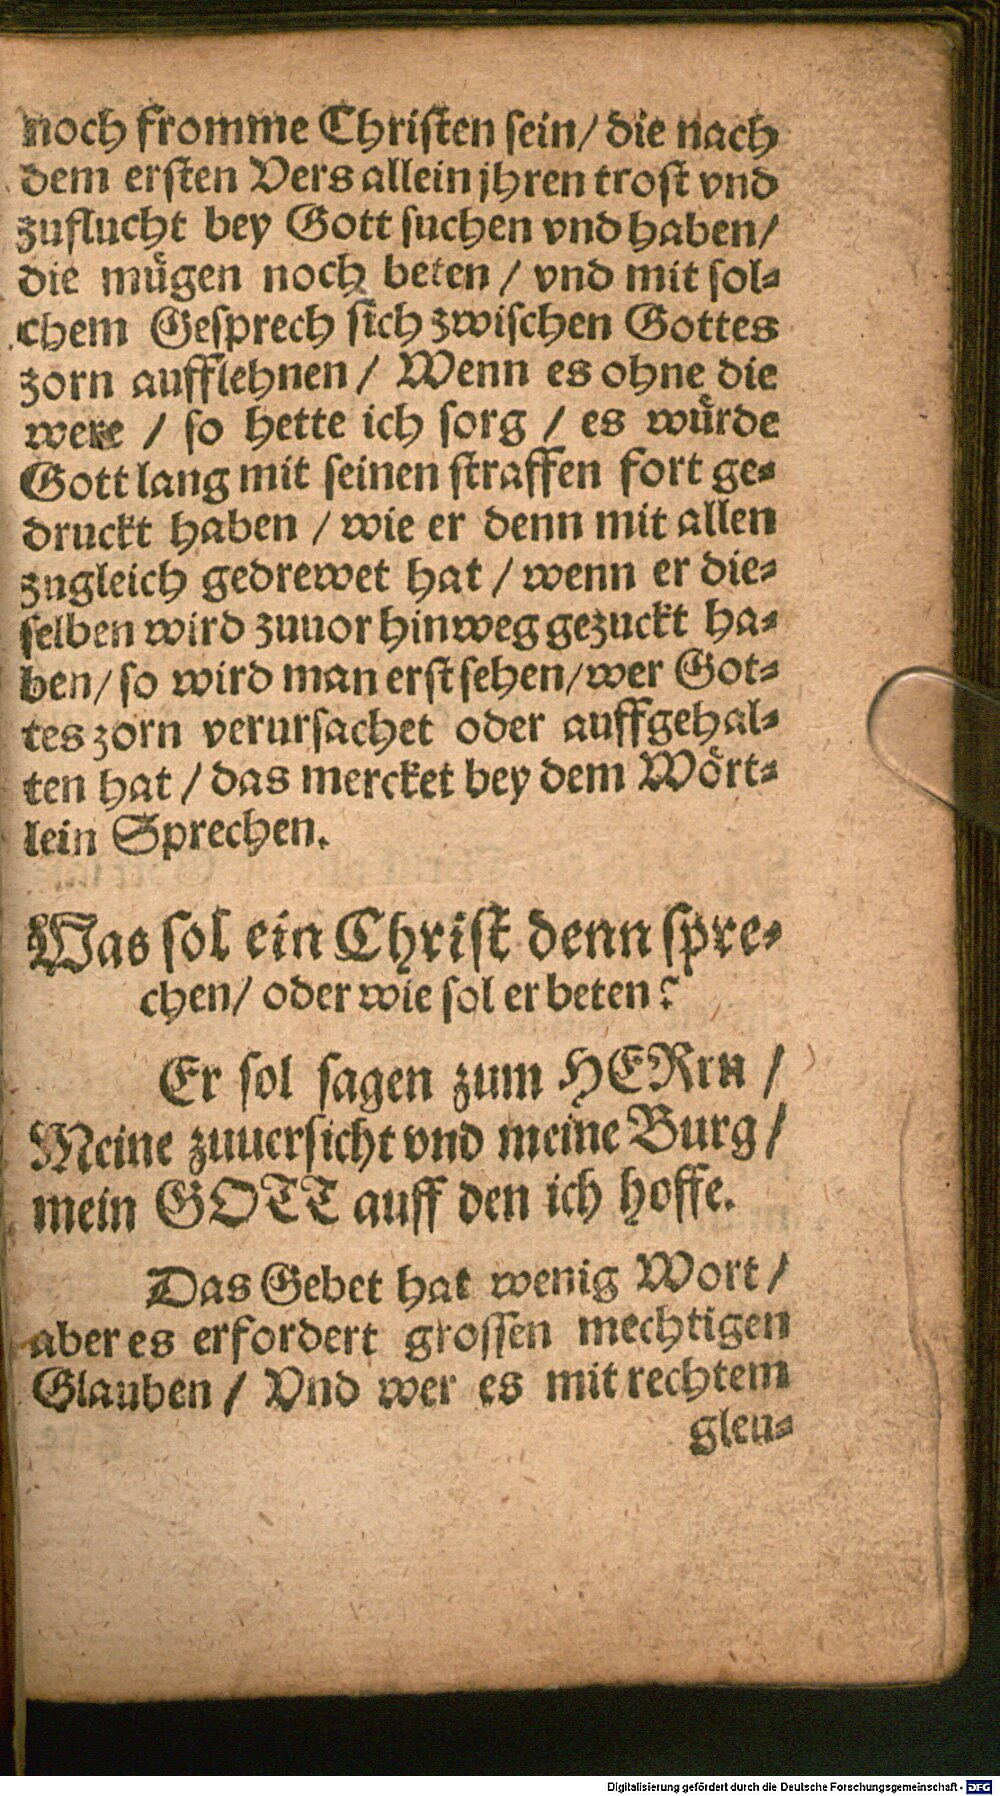 noch fromme Christen sein/ die nach
dem ersten Vers allein jhren trost vnd
zuflucht bey Gott suchen vnd haben/
die mügen noch beten / vnd mit sol-
chem Gesprech sich zwischen Gottes
zorn aufflehnen / Wenn es ohne die
were / so hette ich sorg / es würde
Gott lang mit seinen straffen fort ge-
druckt haben / wie er denn mit allen
zugleich gedrewet hat / wenn er die-
selben wird zuuor hinweg gezuckt ha-
ben/ so wird man erst sehen/ wer Got-
tes zorn verursachet oder auffgehal-
ten hat / das mercket bey dem Wört-
lein Sprechen.
Was sol ein Christ denn spre-
chen/ oder wie sol er beten?
Er sol sagen zum HERrn /
Meine zuuersicht vnd meine Burg /
mein GOTT auff den ich hoffe.
Das Gebet hat wenig Wort /
aber es erfordert grossen mechtigen
Glauben / Vnd wer es mit rechtem
gleu-
Digitalisierung gefördert durch die Deutsche Forschungsgemeinschaft - DFG